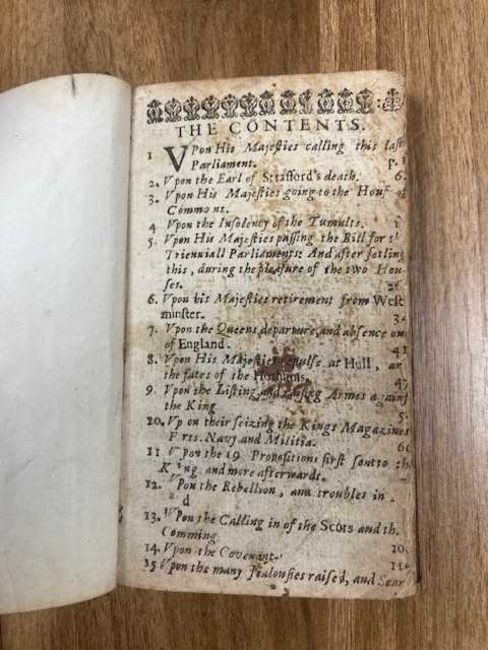 THE CONTENTS.
1 VPon His Majeſties calling this laſt
Parliament. p.
2. Vpon the Earl of Strafford's death. 6
3. Vpon His Majeſties going to the Houſ of
Commons.
4 Vpon the Inſolency of the Tumults.
5. Vpon His Majeſties paſſing the Bill for t
Trienniall Parliaments: And after ſetling
this, during the pleaſure of the two Hou-
ſes. 26
6. Vpon his Majeſties retirement from Weſt
minſter. 32
7. Vpon the Queens departure, and abſence ou
of England. 41
8. Vpon His Majeſties repulſe at Hull, an
the fates of the Hothams. 47
9. Vpon the Liſting and raiſing Armes againſt
the King 5
10. Vp on their ſeizing the Kings Magazines
F rts. Navy and Militia. 6
11 Vpon the 19 Propoſitions firſt ſent to th
K ing and more afterwards.
12. Vpon the Rebellion, and troubles in
d
13. Vpon the Calling in of the Scots and th.
Comming.
14. Vpon the Covenant. 10
15 Vpon the many Jealouſies raiſed, and Scan